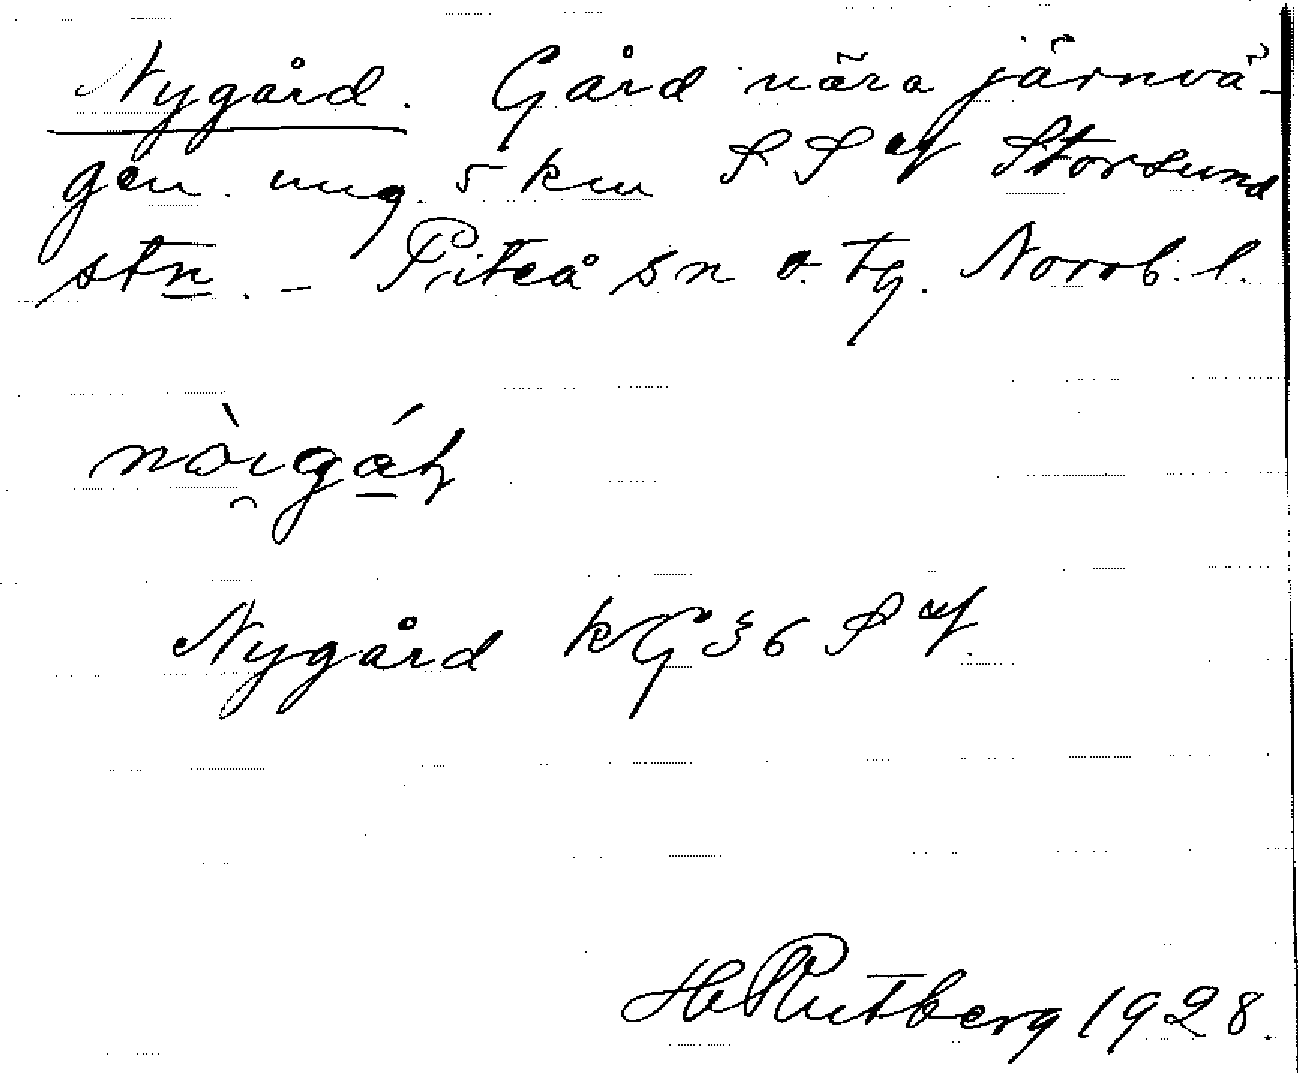 Nygård. Gård nära järnvä-
gen. ung. 5 km S S of Storsund
stn. - Piteå sn o. tg. Norrb. l.
nòigáţ
Nygård kG 36 S of
H Rutberg 1928.